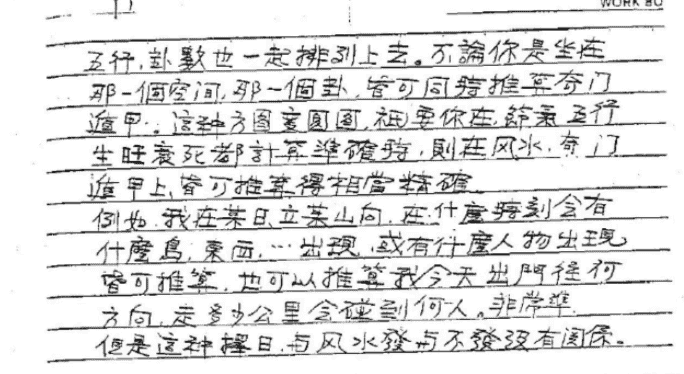 WORK BO
五行,卦數也一起排列上去。不論你是坐在
那一個空间,那一個卦,皆可同時推算奇门
遁甲。這种方图套圆图,祇要你在,節氣五行
生旺衰死都計算準確時,則在风水,奇门
遁甲上,皆可推算得相當精確。
例如,我在某日,立某山向,在,什麼時刻会有
什麼鳥,東西,…出現,或有什麼人物出現
皆可推算,也可以推算我今天出門往何
方向,走多少公里会碰到何人。非常準,
但是這种擇日,与风水發与不發没有関係。